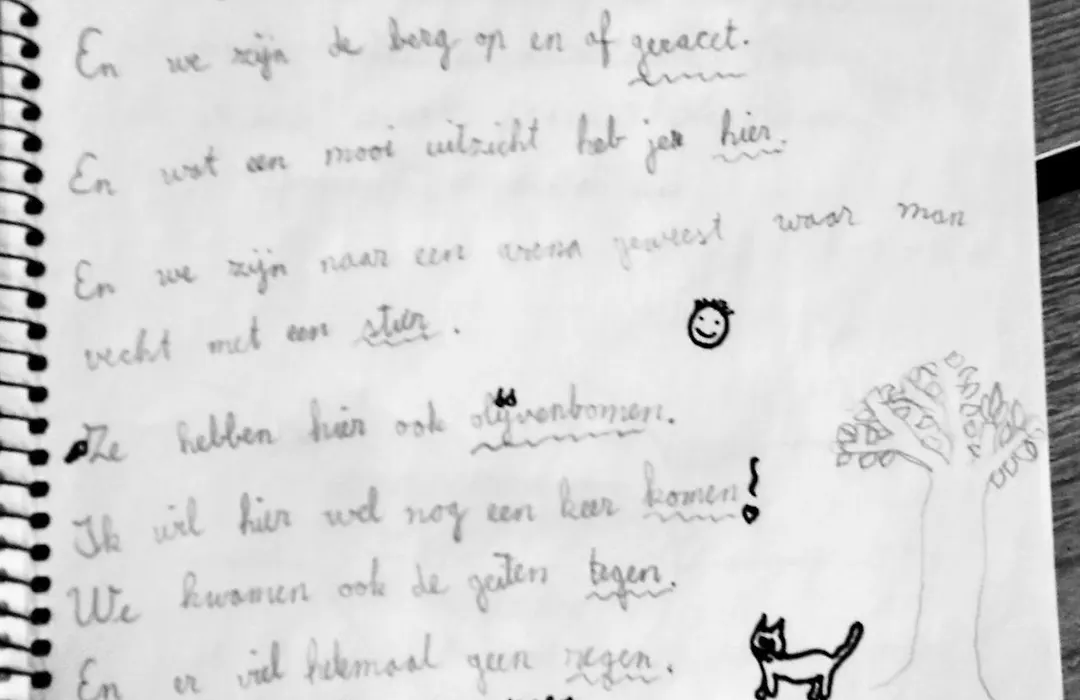 En we zijn de berg op en af geracet.
En wat een mooi uitzicht heb jer hier.
En we zijn naar een arena geweest waar man
vecht met een stier.
Ze hebben hier ook olijvenbomen.
Ik wil hier wel nog een keer komen!
We kwamen ook de geiten tegen.
En er viel helemaal geen regen.